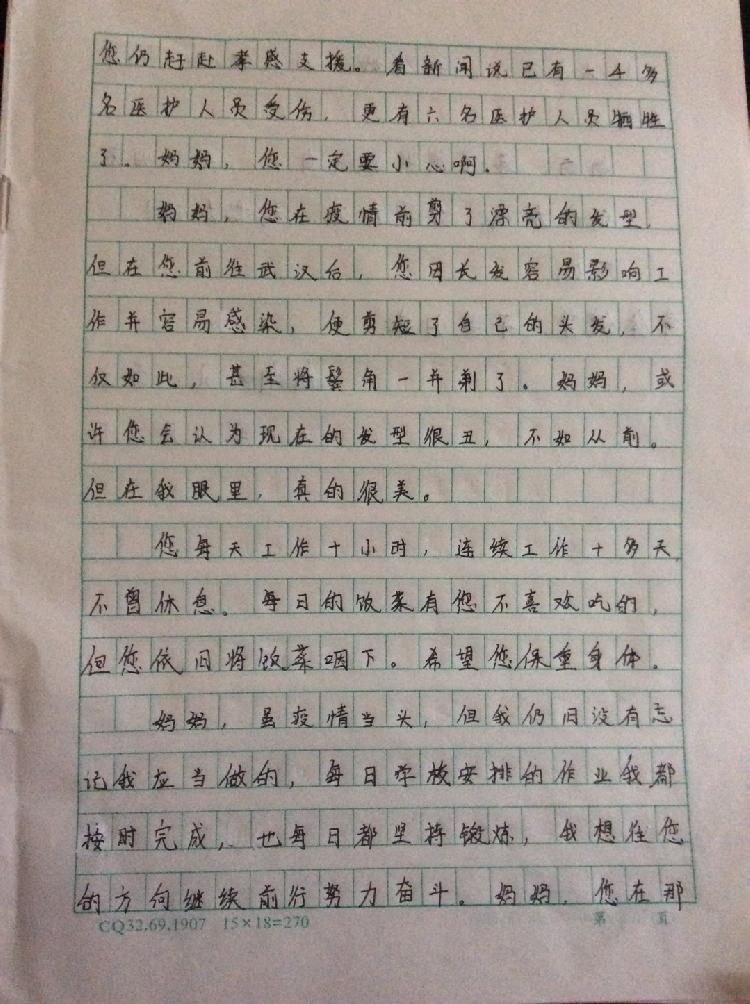 您仍赶赴孝感支援。看新闻说已有一千多
名医护人员受伤，更有六名医护人员牺牲
了。妈妈，您一定要小心啊。
妈妈，您在疫情前剪了漂亮的发型，
但在您前往武汉后，您因长发容易影响工
作并容易感染，便剪短了自己的头发，不
仅如此，甚至将鬓角一并剃了。妈妈，或
许您会认为现在的发型很丑，不如从前。
但在我眼里，真的很美。
您每天工作十小时，连续工作十多天
不曾休息。每日的饭菜有您不喜欢吃的，
但您依旧将饭菜咽下。希望您保重身体。
妈妈，虽疫情当头，但我仍旧没有忘
记我应当做的，每日学校安排的作业我都
按时完成，也每日都坚持锻炼，我想往您
的方向继续前行努力奋斗。妈妈，您在那
CQ32.69.1907 15×18=270 第 页